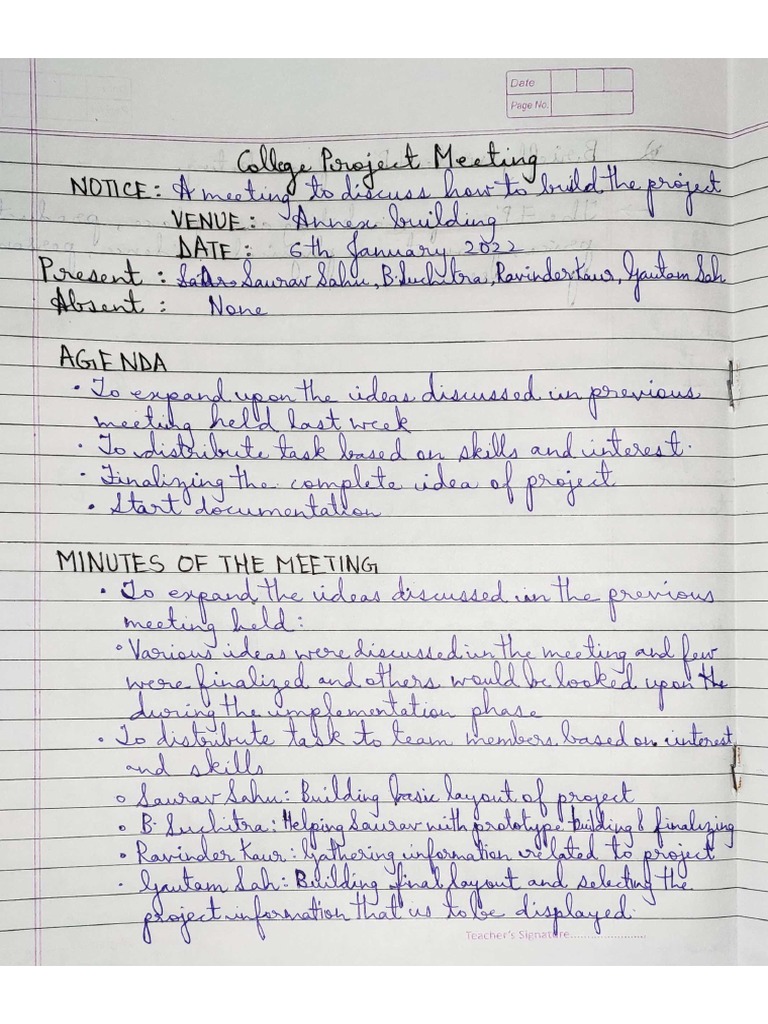 Date
Page No.
College Project Meeting
NOTICE: A meeting to discuss how to build the project
VENUE: Annex building
DATE: 6th January 2022
Present: Saurav Sahu, B.Suchitra, Ravinder Kaur, Gautam Sah
Absent: None
AGENDA
• To expand upon the ideas discussed in previous
meeting held last week
• To distribute task based on skills and interest.
• Finalizing the complete idea of project
• Start documentation
MINUTES OF THE MEETING
• To expand the ideas discussed in the previous
meeting held:
• Various ideas were discussed in the meeting and few
were finalized and others would be looked upon the
during the implementation phase
• To distribute task to team members based on interest
and skills
o Saurav Sahu: Building basic layout of project
• B. Suchitra: Helping Saurav with prototype building & finalizing
• Ravinder Kaur: Gathering information related to project
• Gautam Sah: Building final layout and selecting the
project information that is to be displayed.
Teacher's Signature........................